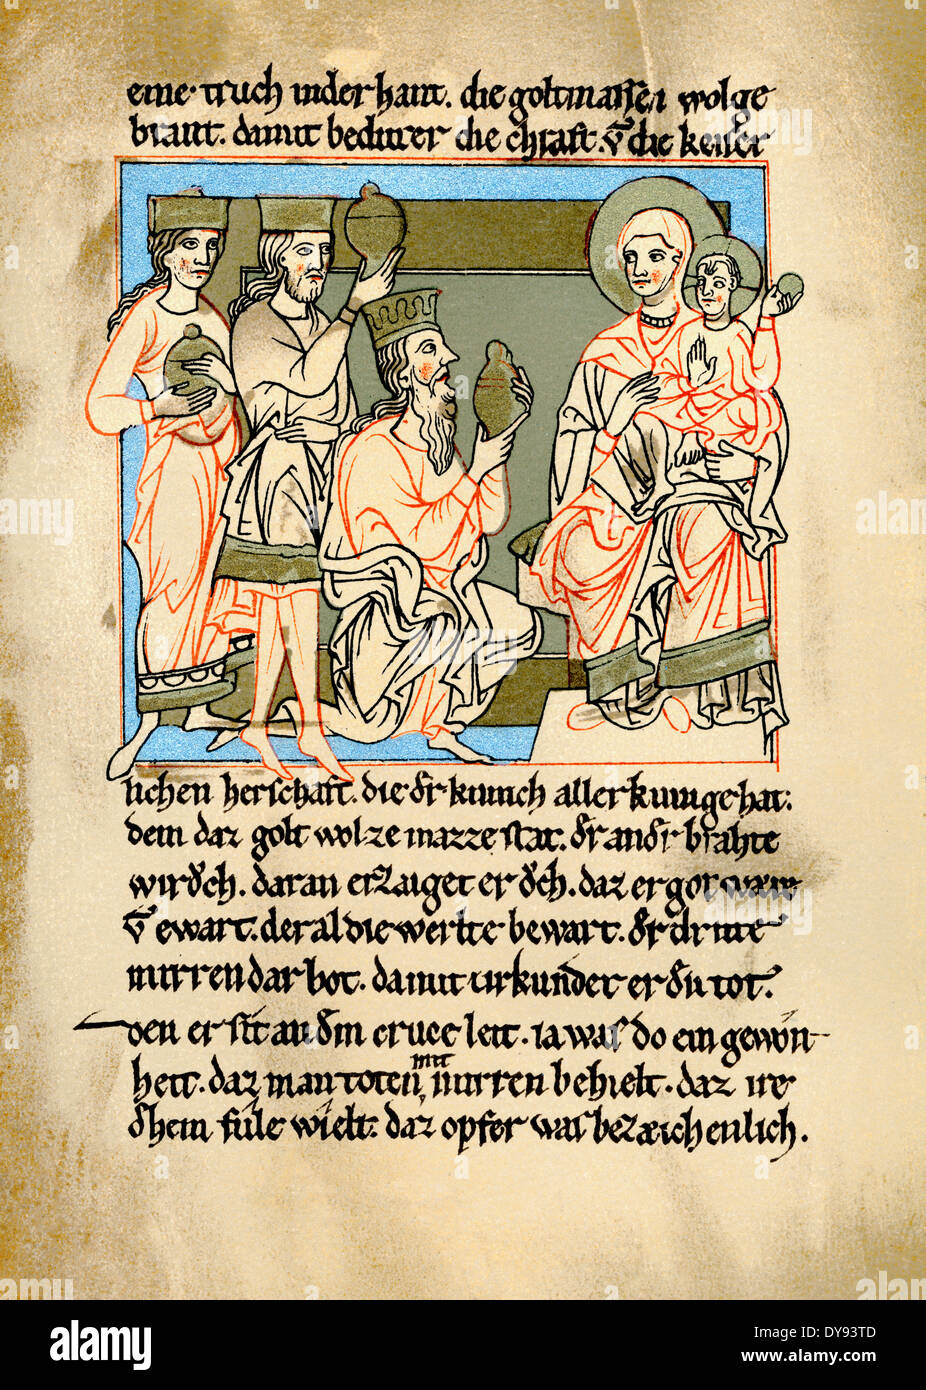 eine truch in der hant. die goltmassen wolge
brant. damit bedutet er die chraft. vn̄ die keiser
lichen herschaft. die dͤr kunich aller kunige hat:
dem daz golt wol ze mazze stat. dͤr andͤr brahte
wirͦch. daran erzaiget er dͦch. daz er got
vn̄ ewart. der al die werlte bewart. dͤr dritte
mirren dar bot. damit urkundet er dͤn tot.
den er sit an dͤm cruce leit. ia was do ein gewon
heit. daz man toten mit mirren behielt. daz ire
dͤhein fule wielt. daz opfer was bezaichenlich.
alamy
alamy stock photo
DY93TD
www.alamy.com